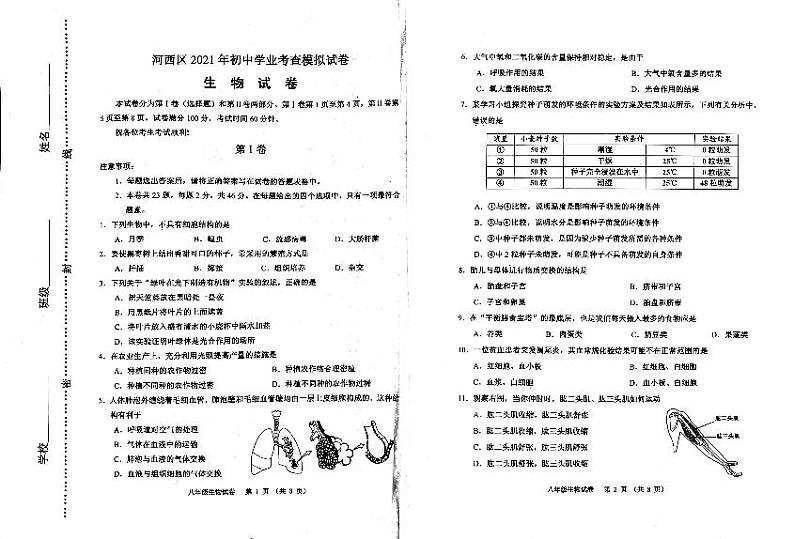 河西区 2021 年初中学业考查模拟试卷
生 物 试 卷
本试卷分为第Ⅰ卷（选择题）和第Ⅱ卷两部分。第Ⅰ卷第1页至第4页，第Ⅱ卷第
5页至第8页。试卷满分100分。考试时间60分钟。
祝各位考生考试顺利！
第Ⅰ卷
注意事项：
1．每题选出答案后，请将正确答案写在试卷的答题表卷中。
2．本卷共23题，每题2分，共46分。在每题给出的四个选项中，只有一项最符合
题意。
1．下列生物中，不具有细胞结构的是
A．月季 B．蝗虫 C．流感病毒 D．大肠杆菌
2．要使
树上结出香甜可口的种子，常采用的繁殖方式是
A．扦插 B．嫁接 C．组织培养 D．杂交
3．下列关于“绿叶在光下制造有机物”实验的叙述，正确的是
A．把天竺葵放在黑暗处一昼夜
B．用黑纸片将叶片的上面遮盖
C．将叶片放入盛有清水的小烧杯中隔水加热
D．该实验证明叶绿体是光合作用的场所
4．在农业生产上，充分利用光照提高产量的措施是
A．种植同种的农作物过密 B．种植农作物合理密植
C．种植不同种的农作物过密 D．种植不同种的农作物过稀
5．人体肺泡外缠绕着毛细血管，肺泡壁和毛细血管壁均由一层上皮细胞构成的，这种结
构有利于
A．呼吸道对空气的处理
B．气体在血液中的运输
C．肺泡与血液的气体交换
D．血液与组织细胞的气体交换
八年级生物试卷 第 1 页 （共 8 页）
姓名
班级
学校
线
封
密
6．大气中氧和二氧化碳的含量保持相对稳定，是由于
A．呼吸作用的结果 B．大气中氧含量多的结果
C．氧大量消耗的结果 D．光合作用的结果
7．某学习小组探究种子萌发的环境条件的实验方案及结果如表所示。下列有关分析中，
错误的是
装置 小麦种子数 实验条件 实验结果
① 50 粒 潮湿 4℃ 0 粒萌发
② 50 粒 干燥 25℃ 0 粒萌发
③ 50 粒 种子完全浸没在水中 25℃ 0 粒萌发
④ 50 粒 潮湿 25℃ 48 粒萌发
A．①与④比较，说明温度是影响种子萌发的环境条件
B．②与④比较，说明水分是影响种子萌发的环境条件
C．③中种子都未萌发，是因为缺少种子萌发所需的各种条件
D．④中2粒种子未萌发，可能是种子不具备萌发的自身条件
8．胎儿与母体进行物质交换的结构是
A．胎盘和子宫 B．脐带和子宫
C．子宫和卵巢 D．胎盘和脐带
9．在“平衡膳食宝塔”的最底层，也是我们每天摄入最多的食物应是
A．谷类 B．肉蛋类 C．奶豆类 D．果蔬类
10．一位贫血患者突发阑尾炎，其血常规化验结果可能不在正常范围的是
A．红细胞、血小板 B．红细胞、白细胞
C．血浆、白细胞 D．血小板、白细胞
11．观察右图，当你伸肘时，肱二头肌、肱三头肌如何运动
A．肱二头肌收缩，肱三头肌舒张
B．肱二头肌收缩，肱三头肌收缩
C．肱二头肌舒张，肱三头肌舒张
D．肱二头肌舒张，肱三头肌收缩
肱二头肌
肱三头肌
八年级生物试卷 第 2 页 （共 8 页）